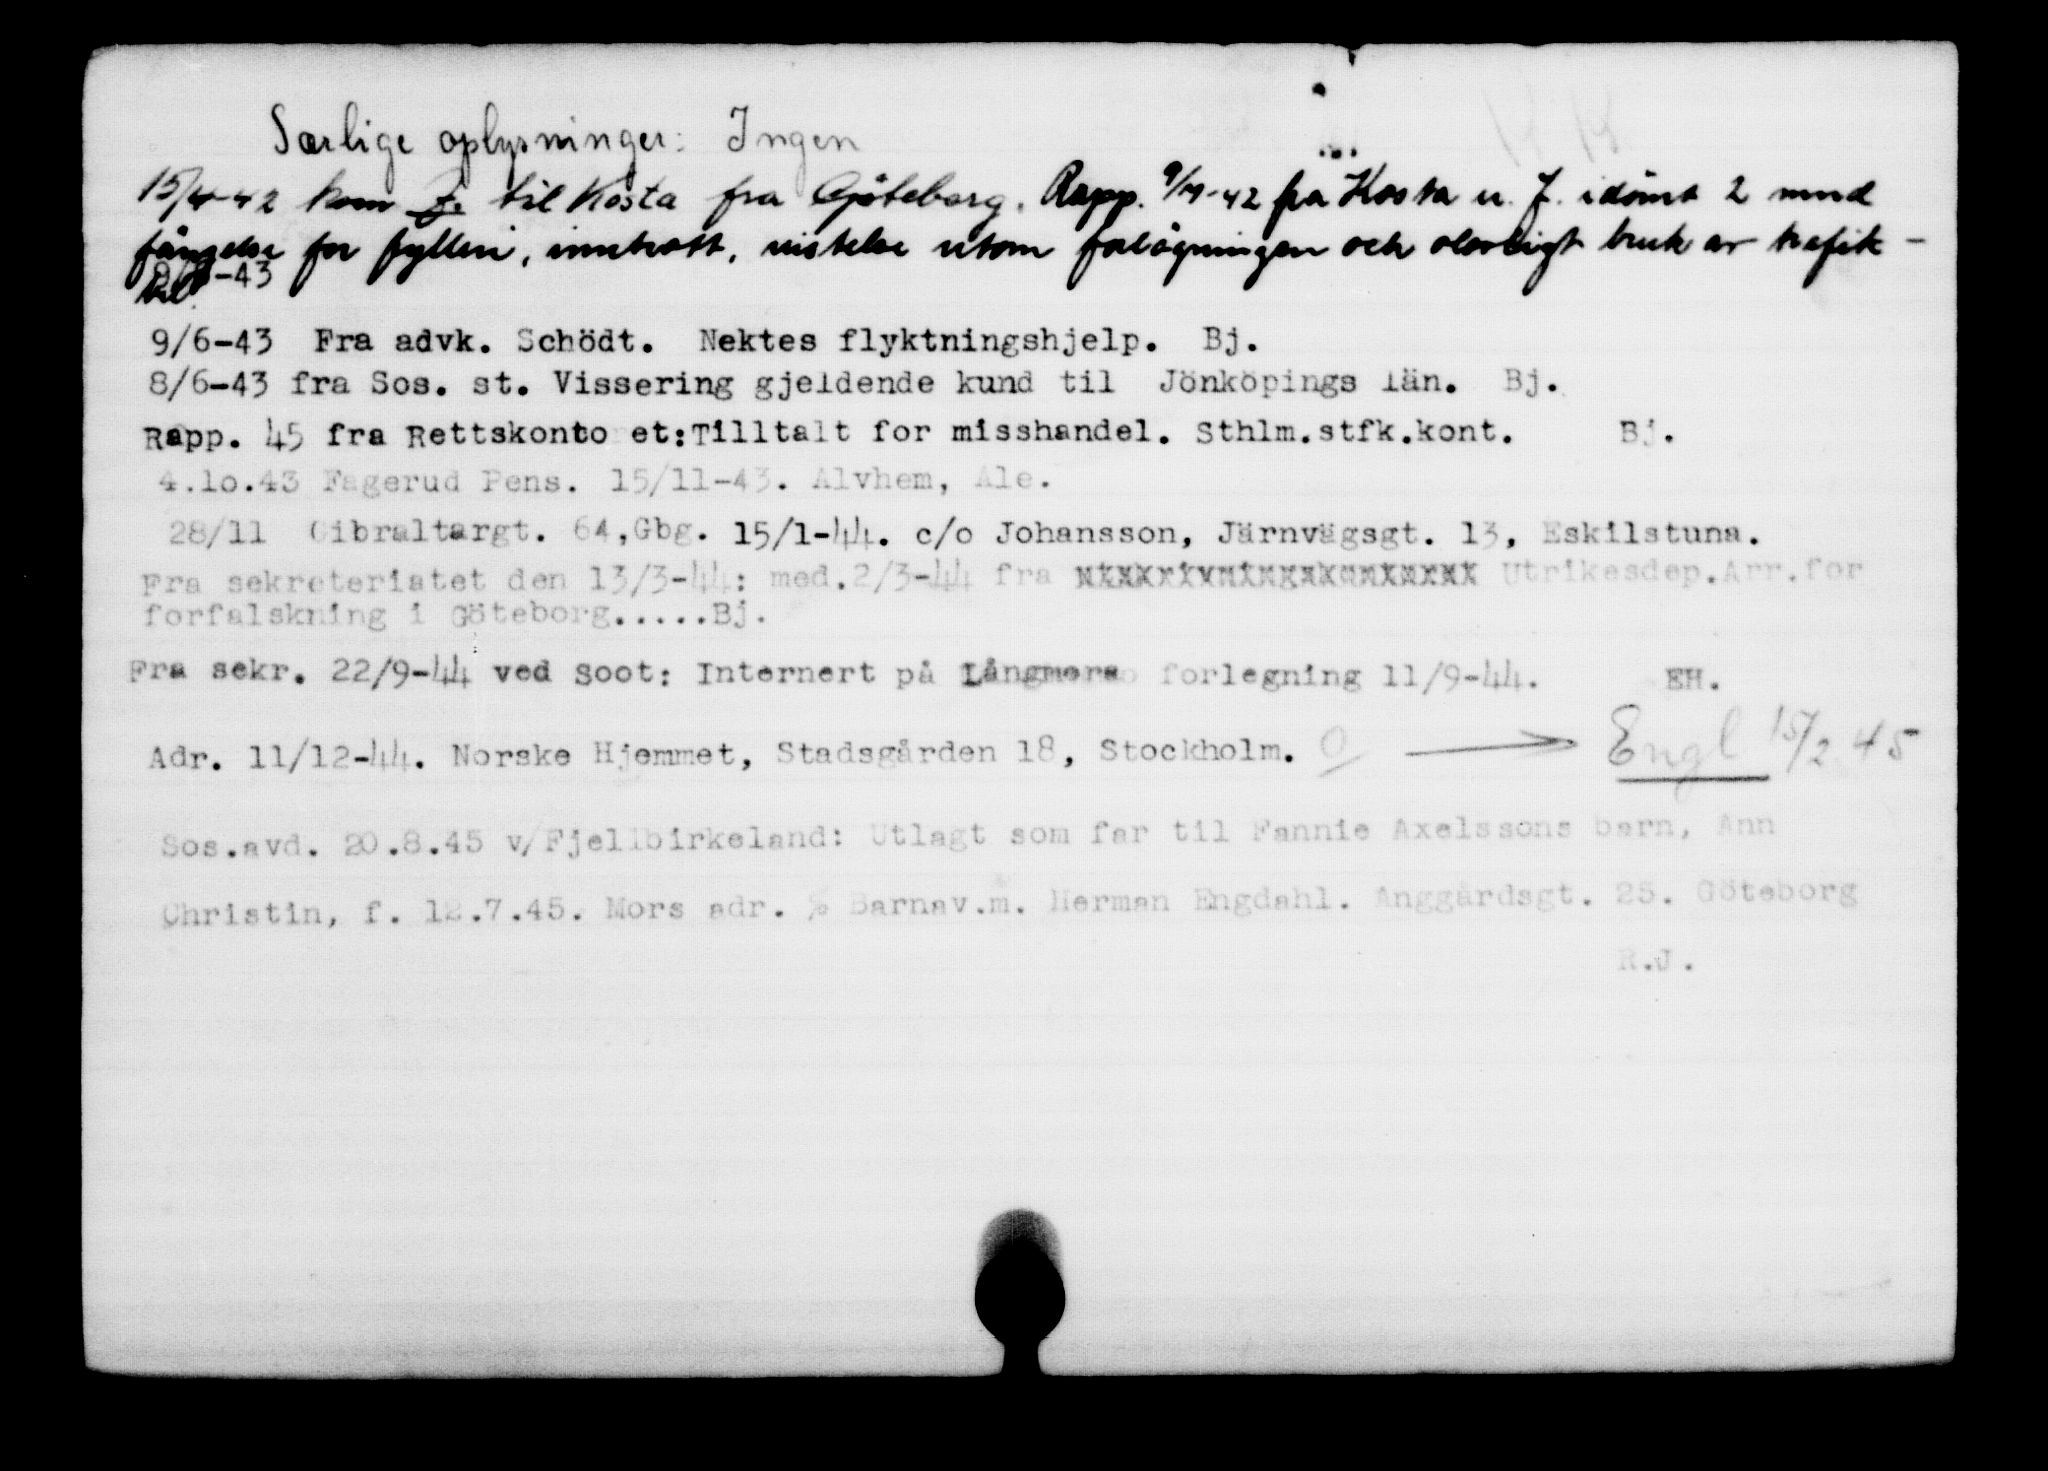 Særlige oplysninger: Ingen
15/4-42 kom til Kosta fra Göteborg. Rapp. 9/4-42 fra Kosta u. J. idömt 2 mnd
fängelse for fylleri, vistelse utom forlägningen och olovligt bruk av trafik-
bil.
-43
9/6-43 Fra advk. Schödt. Nektes flyktningshjelp. Bj.
8/6-43 fra Sos. st. Vissering gjeldende kund til Jönköpings län. Bj.
Rapp. 45 fra Rettskontoret:Tilltalt for misshandel. Sthlm.stfk.kont. Bj.
4.10.43 Fagerud Pens. 15/11-43. Alvhem, Ale.
28/11 Gibraltargt. 64,Gbg. 15/1-44. c/o Johansson, Järnvägsgt. 13, Eskilstuna.
Fra sekreteriatet den 13/3-44: med.2/3-44 fra Utrikesdep.Arr.for
forfalskning i Göteborg.....Bj.
Fra sekr. 22/9-44 ved Soot: Internert på Långmora forlegning 11/9-44. EH.
Adr. 11/12-44. Norske Hjemmet, Stadsgården 18, Stockholm. O Engl 15/2 45
Sos.avd. 20.8.45 v/Fjellbirkeland: Utlagt som far til Fannie Axelssons barn, Ann
Christin, f. 12.7.45. Mors adr. % Barnav.m. Herman Engdahl. Anggårdsgt. 25. Göteborg
R.J.